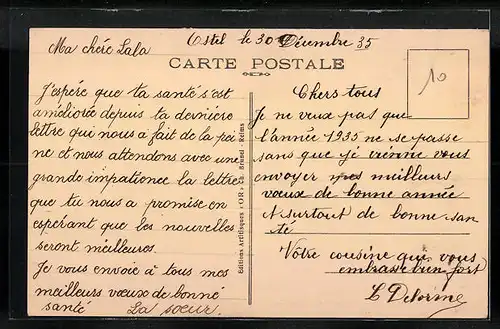 Ostel le 30 Décembre 35
Ma chère Lala
CARTE POSTALE
10
J'espère que ta santé s'est
améliorée depuis ta dernière
lettre qui nous a fait de la pei
ne et nous attendons avec une
grande impatience la lettre
que tu nous a promise en
espérant que les nouvelles
seront meilleures.
Je vous envoie à tous mes
meilleurs vœux de bonne
santé La sœur.
Editions Artistiques « OR » Ch. Brunel - Reims
Chers tous
Je ne veux pas que
l'année 1935 ne se passe
sans que je vienne vous
envoyer mes meilleurs
vœux de bonne année
et surtout de bonne san
té
Votre cousine qui vous
embrasse bien fort
L Delorme